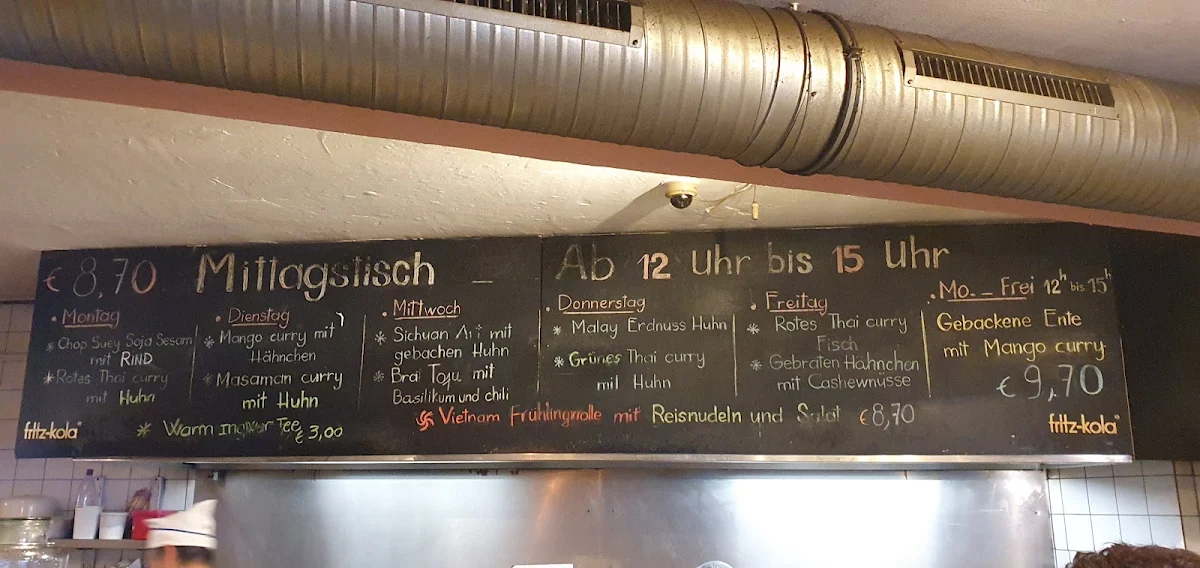 € 8,70 Mittagstisch
Ab 12 Uhr bis 15 Uhr
Montag
* Chop Suey Soja Sesam
mit RIND
* Rotes Thai curry
mit Huhn
Dienstag
* Mango curry mit
Hähnchen
* Masaman curry
mit Huhn
Mittwoch
* Sichuan mit
gebachen Huhn
* Brat Tofu mit
Basilikum und chili
Donnerstag
* Malay Erdnuss Huhn
* Grünes Thai curry
mit Huhn
Freitag
* Rotes Thai curry
Fisch
* Gebraten Hähnchen
mit Cashewnüsse
Mo. - Frei 12h bis 15h
Gebackene Ente
mit Mango curry
€ 9,70
fritz-kola
* Warm Tee € 3,00
Vietnam Frühlingrolle mit Reisnudeln und Salat €8,70
fritz-kola